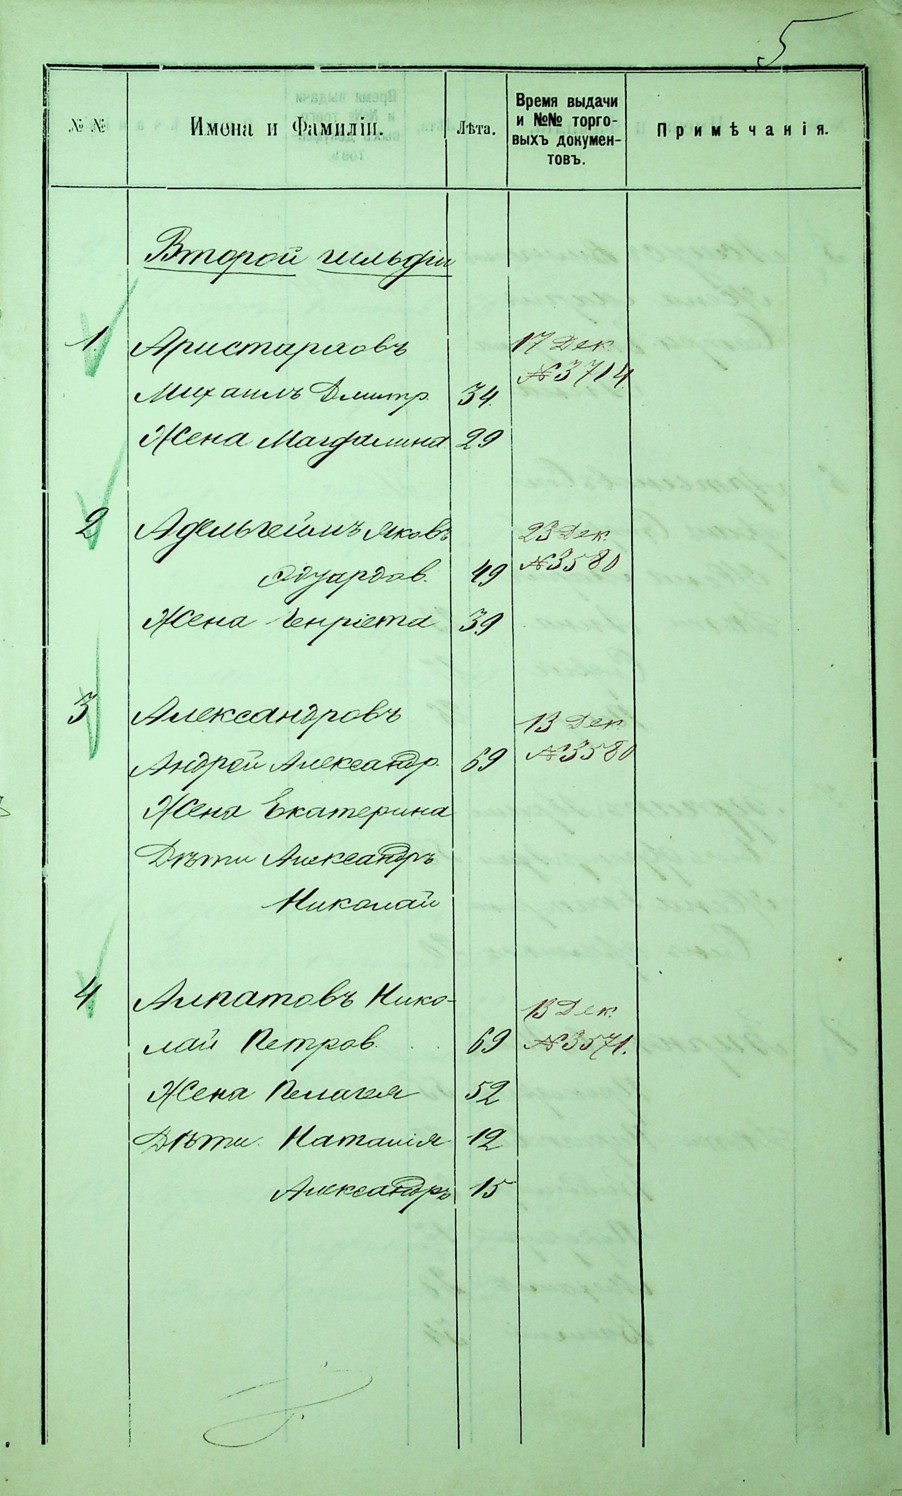 5
№№
Имена и Фамиліи.
Лѣта.
Время выдачи
и №№ торго-
выхъ докумен-
товъ.
Примѣчанія.
Второй гильдіи
1. Аристарховъ 17 Дек.
Михаилъ Дмитр. 34 №3714
Жена Магдалина 29
2 Адельгеймъ Яковъ 23 Дек.
Эдуардов. 49 №3580
Жена Генріета 39
3 Александровъ 13 Дек.
Андрей Александр. 69 №3580
Жена Екатерина
Дѣти Александръ
Николай
4 Алпатовъ Нико- 13 Дек.
лай Петров. 69 №3571.
Жена Пелагея 52
Дѣти. Наталія 12
Александръ 15